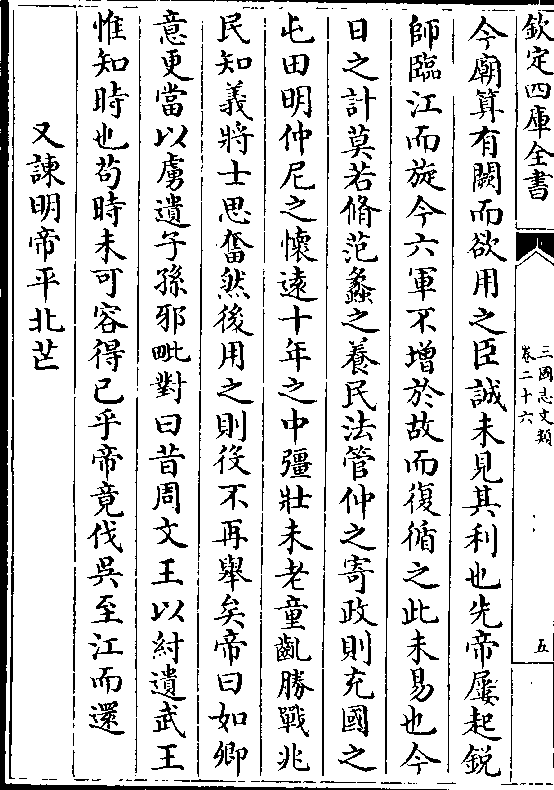 欽定四庫全書
三國志文類
卷二十六
五
今廟算有闕而欲用之臣誠未見其利也先帝屢起鋭
師臨江而旋今六軍不増於故而復循之此未易也今
日之計莫若脩范蠡之養民法管仲之寄政則充國之
屯田明仲尼之懷遠十年之中彊壯未老童齓勝戰兆
民知義將士思奮然後用之則役不再舉矣帝曰如卿
意更當以虜遺子孫邪毗對曰昔周文王以紂遺武王
惟知時也苟時未可容得已乎帝竟伐吳至江而還
又諫明帝平北芒